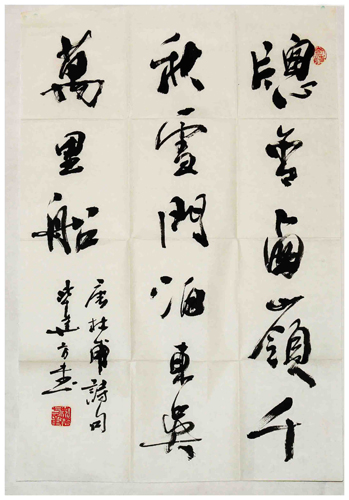 牕含西嶺千
秋雪門泊東吳
萬里船
唐杜甫詩句